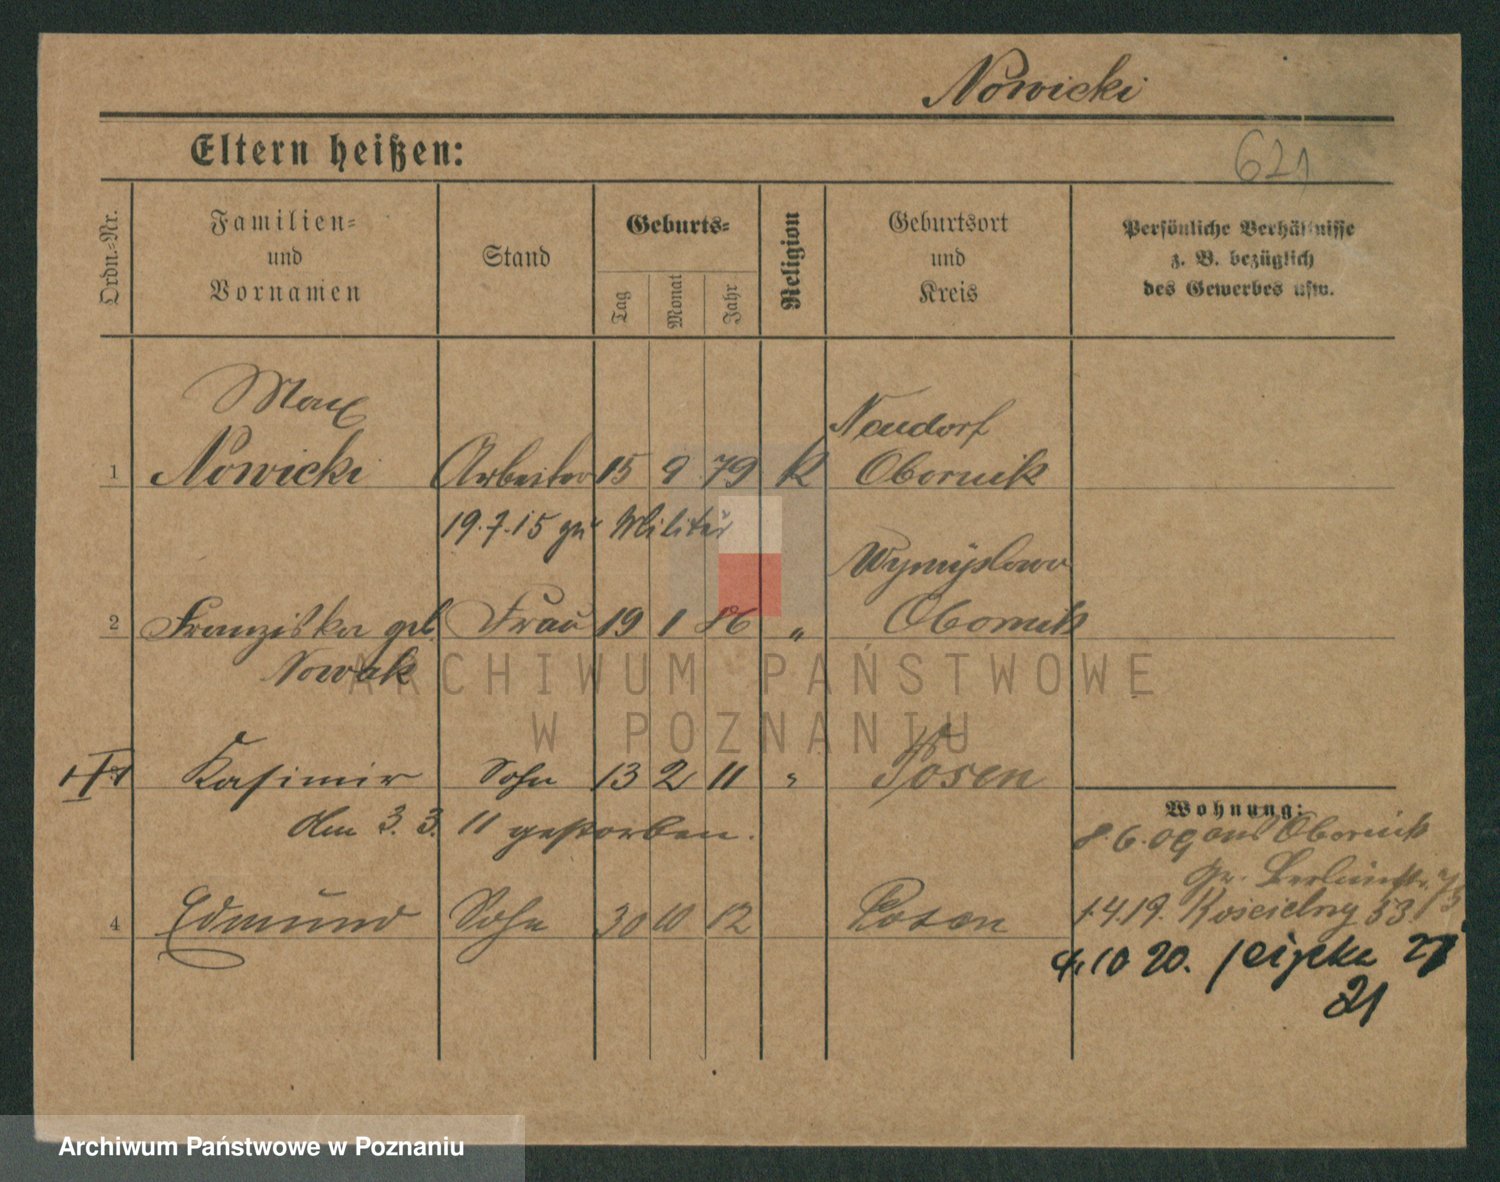 Nowicki
Eltern heißen:
621
Ordn.-Nr.
Familien-
und
Vornamen
Stand
Geburts-
Tag
Monat
Jahr
Religion
Geburtsort
und
Kreis
Persönliche Verhältnisse
z. B. bezüglich
des Gewerbes usw.
Max
Neudorf
1 Nowicki Arbeiter 15 9 79 K Obornik
19.7.15 zu Militär
Wymyslowo
2 Franziska geb. Frau 19 1 86 " Obornik
Nowak
Kasimir Sohn 13 2 11 " Posen
Am 3. 3. 11 gestorben.
Wohnung:
8.6.09 aus Obornik
gr. Berlinerstr. 73
4 Edmund Sohn 30 10 12 Posen
1.4.19. Koscielny 53
4.10 20.
21
ARCHIWUM PAŃSTWOWE
W POZNANIU
Archiwum Państwowe w Poznaniu